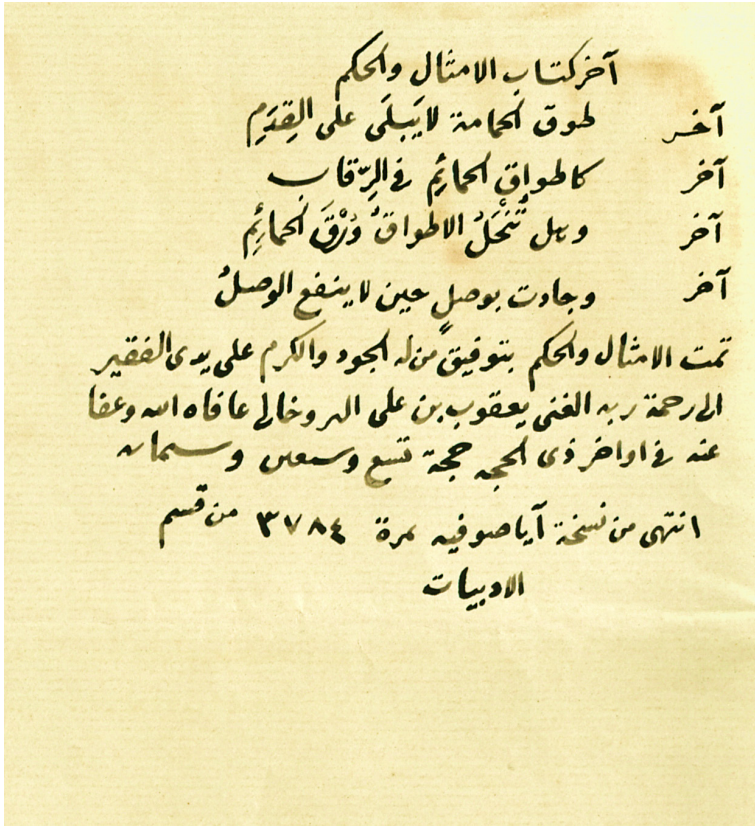 آخر كتاب الامثال والحكم
آخر طوق الحمامة لا يَبلَى على القِدَمِ
آخر كاطواق الحمائِمِ في الرِّقاب
آخر وهل تُنْحَلُ الاطواقُ وُرْقَ الحمائِمِ
آخر وجادت بوصلٍ حين لا ينفع الوصلُ
تمت الامثال والحكم بتوفيق من له الجود والكرم على يدى الفقير
الى رحمة ربه الغنى يعقوب بن على عافاه الله وعفا
عنه فى اواخر ذى الحجه حجة تسع وسبعين وستمائه
انتهى من نسخة آيا صوفيه نمرة ٣٧٨٤ من قسم
الادبيات